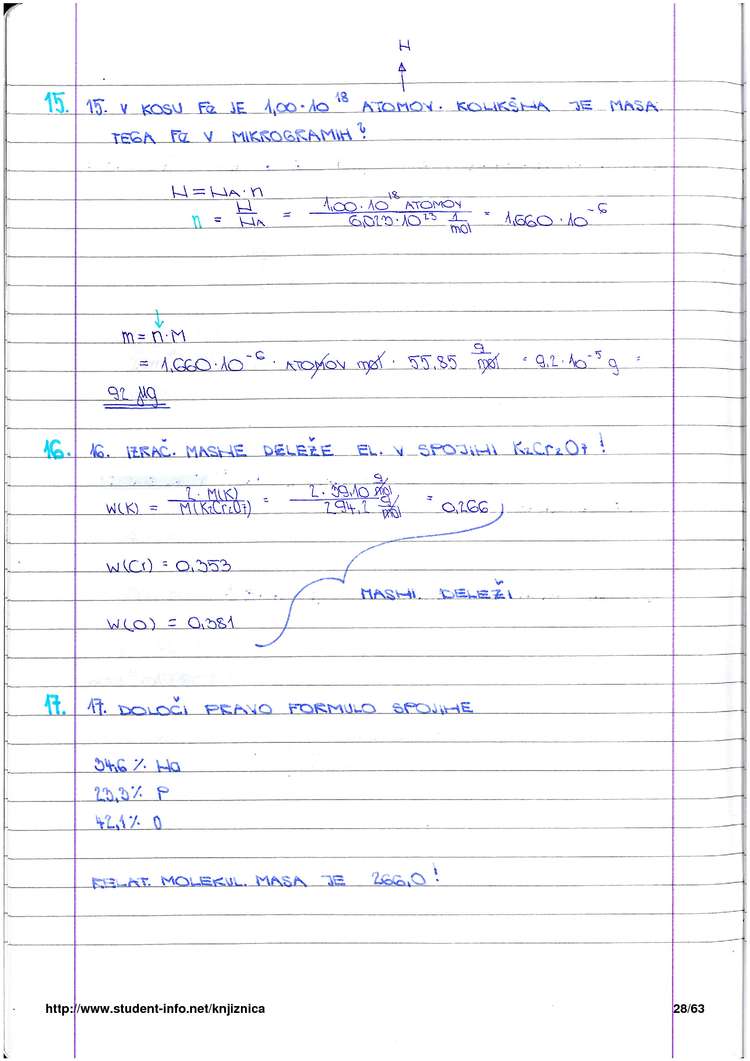 N
15. 15. V KOSU Fe JE 1,00·10^18 ATOMOV. KOLIKŠNA JE MASA
TEGA Fe V MIKROGRAMIH?
N = NA·n
n = N/NA = 1,00·10^18 ATOMOV / 6,023·10^23 1/mol = 1,660·10^-6
m = n·M
= 1,660·10^-6 · ATOMOV mol · 55,85 g/mol = 9,2·10^-5 g =
92 μg
16. 16. IZRAČ. MASNE DELEŽE EL. V SPOJINI K2Cr2O7!
W(K) = 2·M(K) / M(K2Cr2O7) = 2·39,10 g/mol / 294,2 g/mol = 0,266
W(Cr) = 0,353
MASNI DELEŽI
W(O) = 0,381
17. 17. DOLOČI PRAVO FORMULO SPOJINE
34,6 % Na
23,3 % P
42,1 % O
RELAT. MOLEKUL. MASA JE 266,0!
http://www.student-info.net/knjiznica
28/63